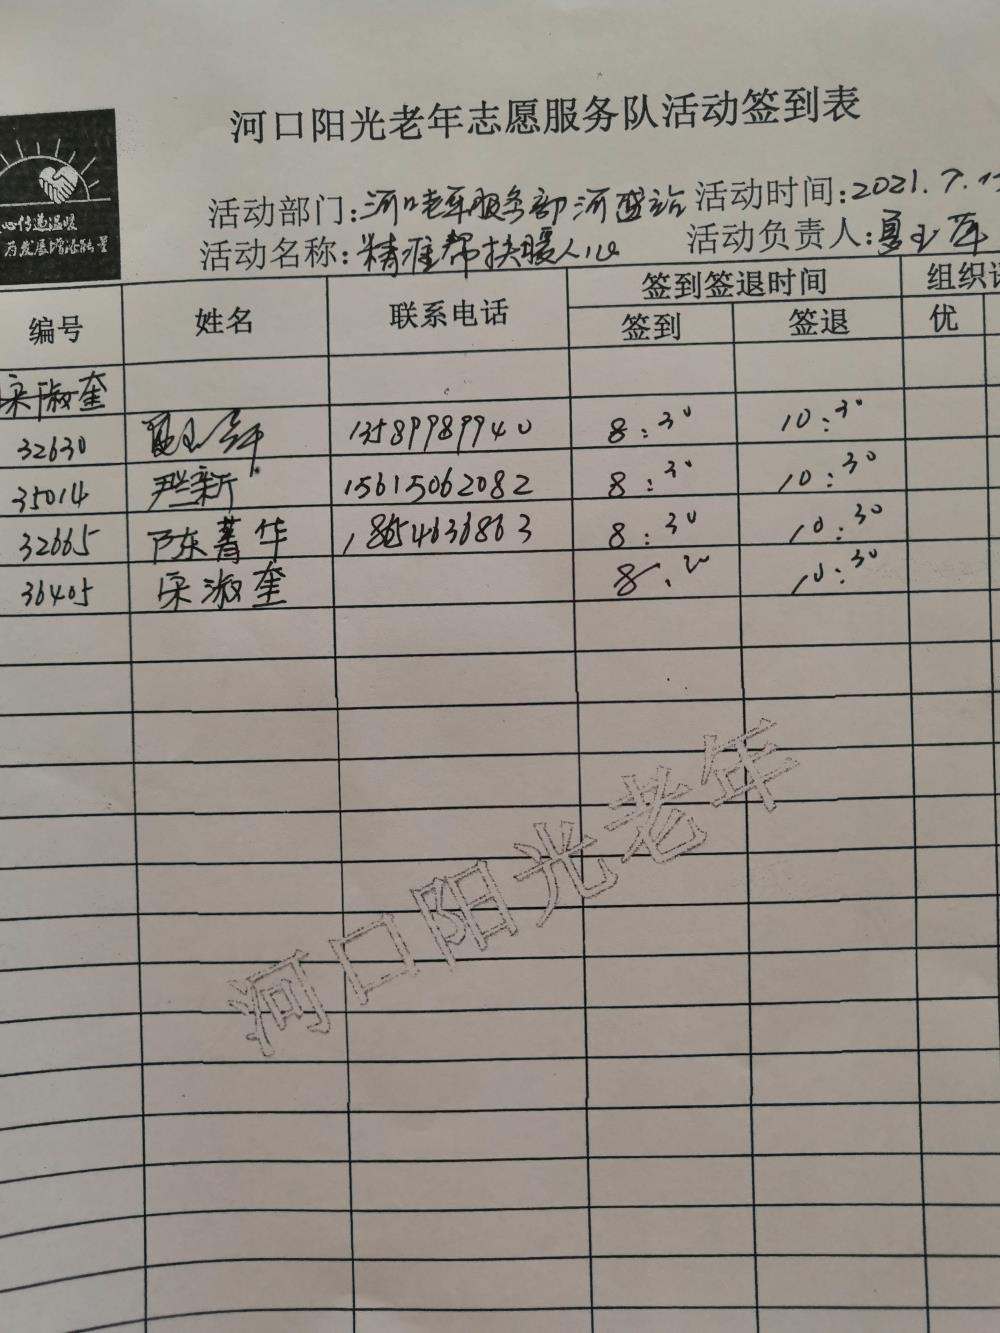 河口阳光老年志愿服务队活动签到表
心传递温暖
为发展增添能量
活动部门:河口老年服务部河盛站 活动时间:2021.7.
活动名称:精准帮扶暖人心 活动负责人:夏玉萍
编号 姓名 联系电话 签到签退时间 组织
签到 签退 优
宋淑奎
32630 夏玉萍 13589989940 8:30 10:30
35014 尹兰新 15615062082 8:30 10:30
32665 陈菁华 18654636863 8:30 10:30
36405 宋淑奎 8:20 10:30
河口阳光老年